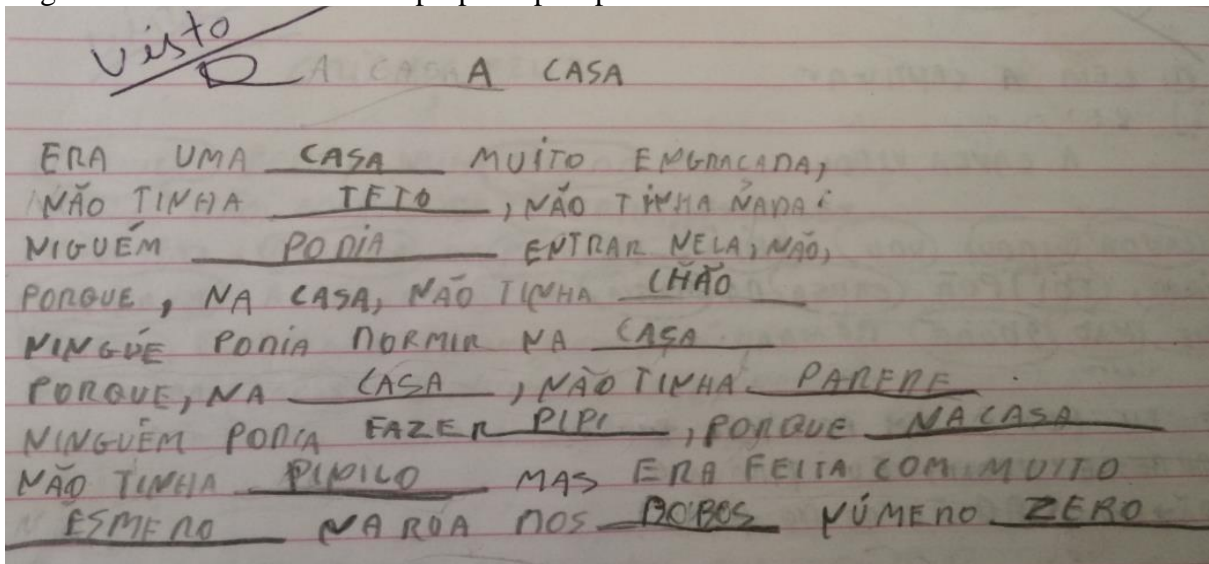 Visto
A CASA
ERA UMA CASA MUITO ENGRAÇADA,
NÃO TINHA TETO, NÃO TINHA NADA:
NIGUÉM PODIA ENTRAR NELA, NÃO,
PORQUE, NA CASA, NÃO TINHA CHÃO
NINGUÉ PODIA DORMIR NA CASA
PORQUE, NA CASA, NÃO TINHA PAREDE.
NINGUÉM PODIA FAZER PIPI, PORQUE NA CASA
NÃO TINHA MAS ERA FEITA COM MUITO
ESMERO NA RUA DOS BOBOS NÚMERO ZERO